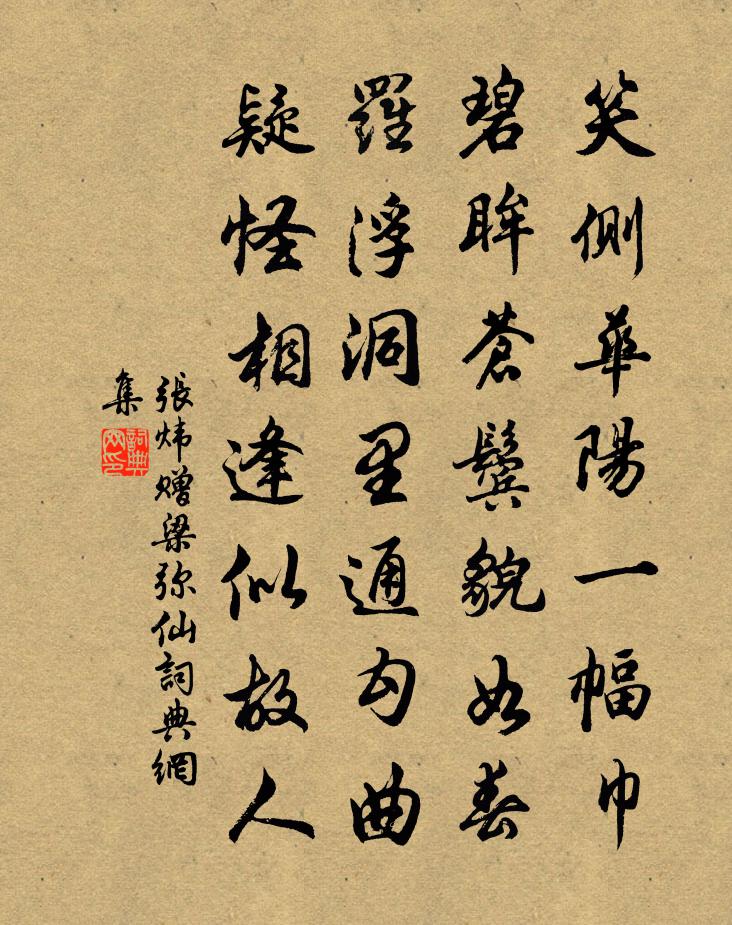 笑側華陽一幅巾
碧眸蒼鬢貌如春
羅浮洞里通勾曲
疑怪相逢似故人
張炜贈梁弥仙詞典網
集
詞典
网印